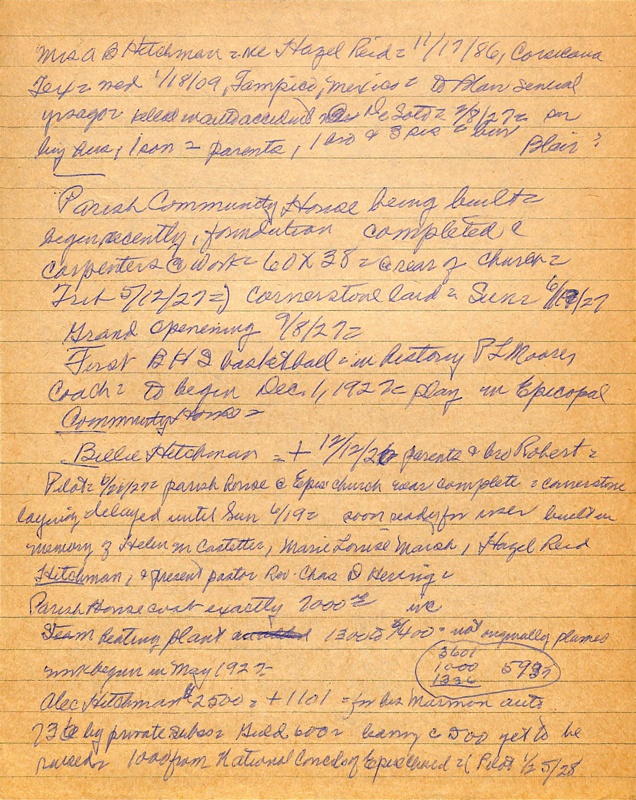 Mrs A B Hitchman = nee Hazel Reid = 11/17/86, Corsicana
Tex = med 1/18/09, Tampico, Mexico = to Blair several
yrs ago = killed in auto accident @ De Soto = 3/8/27 = sur
by hus, 1 son = parents, 1 bro & 3 sis = bur Blair ?
Parish Community House being built =
begun recently, foundation completed &
carpenters @ work = 60 X 38 = @ rear of church =
Trib 5/12/27 =) cornerstone laid = Sun = 6/19/27
Grand opening 9/8/27 =
First B H S basketball = in history P L Moores
coach = to begin Dec 1, 1927 = play in Episcopal
Community House =
Billie Hitchman = + 12/12/26 parents & bro Robert =
Pilot = parish house @ Epis church near complete = cornerstone
laying delayed until Sun 6/19 = soon ready for use = built in
memory of Helen M Castetter, Marie Louise Marsh, Hazel Reid
Hitchman, & present pastor Rev. Chas D Hering =
Parish House cost exactly 7000 = inc
Steam heating plant 1300 to 1400 = not originally planned
work begun in May 1927 =
3601
1000 5937
1336
Alec Hitchman $2500 = + 1101 = for his Marmon auto
736 by private subs = Guild 600 = carry @ 500 yet to be
raised = 1000 from National Council of Epis church = (Pilot 1/25/28